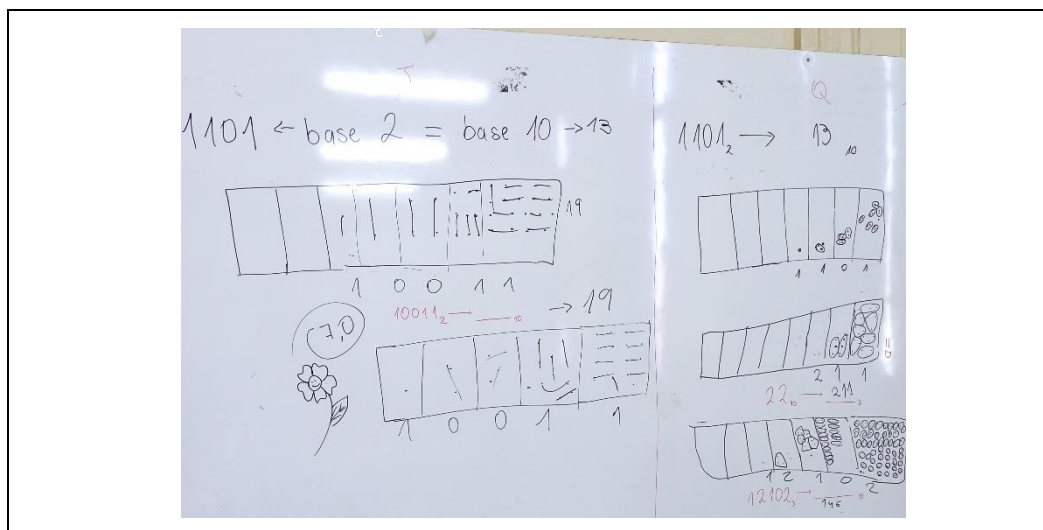 T
1101 ← base 2 = base 10 → 13
19
1 0 0 1 1
10011₂ — ____ ₁₀ → 19
7,0
1 0 0 1 1
Q
1101₂ → 13 ₁₀
1 1 0 1
2 1 1
22₁₀ → 211₃
1 2 1 0 2
12102₃ → 146